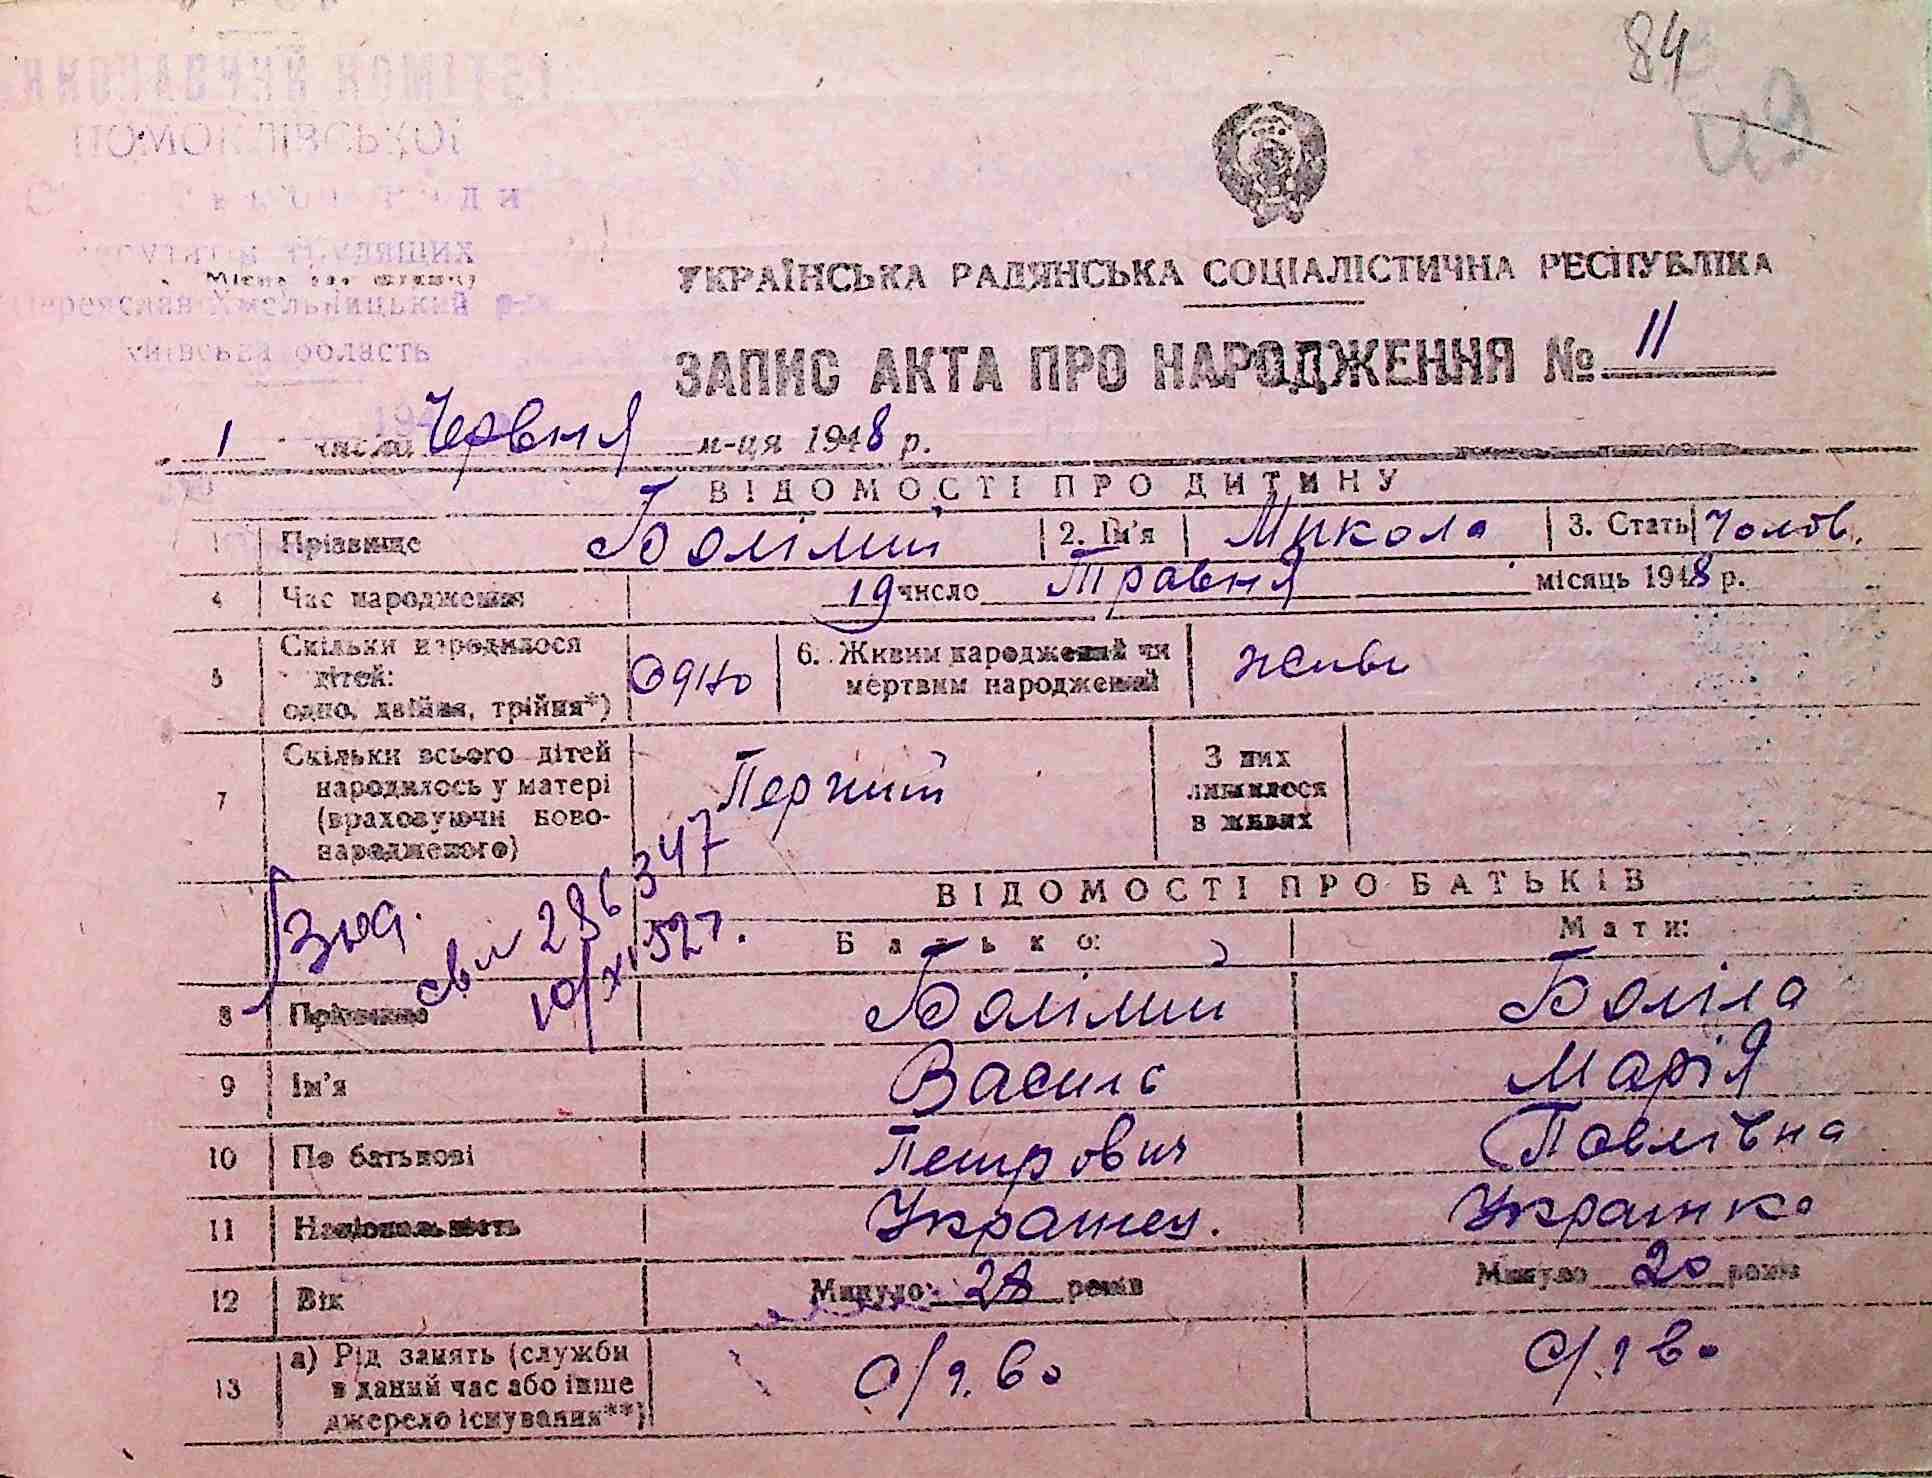 84
ВИКОНАВЧИЙ КОМІТЕТ
ПОМОКЛІВСЬКОЇ
трудящих
Переяслав Хмельницький р-н
Київська область
УКРАЇНСЬКА РАДЯНСЬКА СОЦІАЛІСТИЧНА РЕСПУБЛІКА
ЗАПИС АКТА ПРО НАРОДЖЕННЯ № 11
1 числа Червня м-ця 1948 р.
ВІДОМОСТІ ПРО ДИТИНУ
1 Прізвище Болілий 2. Ім'я Микола 3. Стать Чолов.
4 Час народження 19 число Травня місяць 1948 р.
5 Скільки народилося дітей: одно, двійня, трійня*) Одно 6. Живим народжений чи мертвим народжений живе
7 Скільки всього дітей народилось у матері (враховуючи ново-народженого) Перший З них лишилося в живих
ВІДОМОСТІ ПРО БАТЬКІВ
Батько: Мати:
286347
10/XI 52
8 Прізвище Болілий Боліла
9 Ім'я Василь Марія
10 По батькові Петрович Павлівна
11 Національність Українец. Українка
12 Вік Минуло 28 років Минуло 20 років
13 а) Рід занять (служби в даний час або інше джерело існування**)